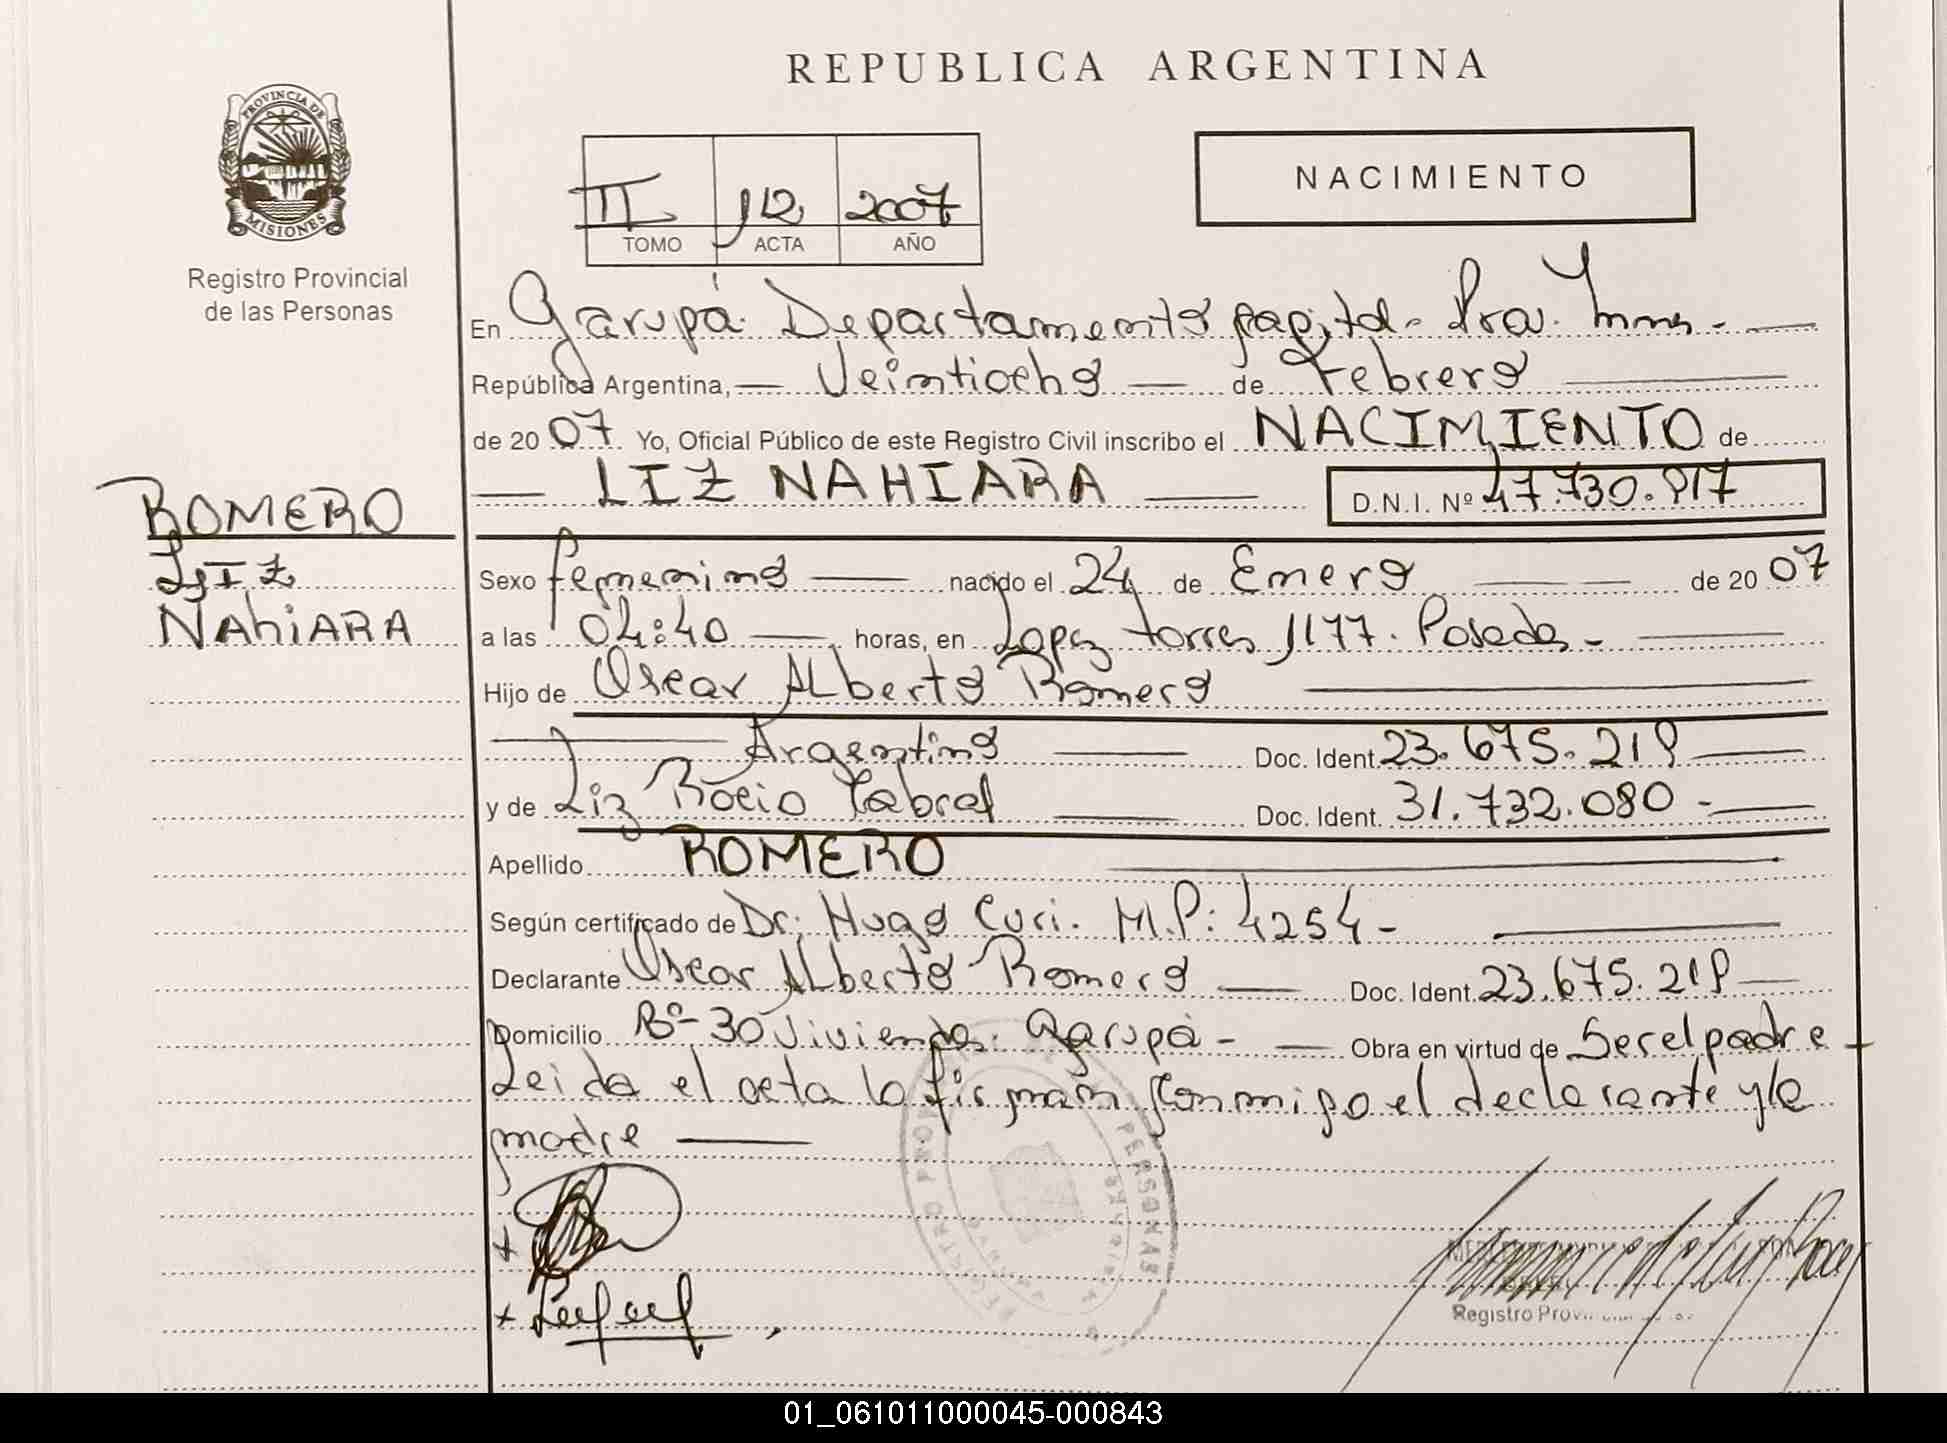 REPUBLICA ARGENTINA
PROVINCIA DE
MISIONES
Registro Provincial
de las Personas
II 112 2007
TOMO ACTA AÑO
NACIMIENTO
En Garupá. Departamento Capital. Pra.
República Argentina, — Veintiocho — de Febrero
de 2007 Yo, Oficial Público de este Registro Civil inscribo el NACIMIENTO de
— LIZ NAHIARA — D.N.I. Nº 47.730.917
ROMERO
LIZ
NAhiARA
Sexo femenino — nacido el 24 de Enero — de 2007
a las 04:40 — horas, en Lopez Torres 1177. Posadas -
Hijo de Oscar Alberto Romero
Argentino — Doc. Ident. 23.675.219
y de Liz Rocio Cabral — Doc. Ident. 31.732.080 -
Apellido ROMERO
Según certificado de Dr: Hugo Curi. M.P: 4254 -
Declarante Oscar Alberto Romero — Doc. Ident. 23.675.219
Domicilio Bº- 30 Viviendas. Garupá - — Obra en virtud de Ser el padre
Leida el acta la firman conmigo el declarante y la
madre —
REGISTRO PERSONAS
Registro
01_061011000045-000843